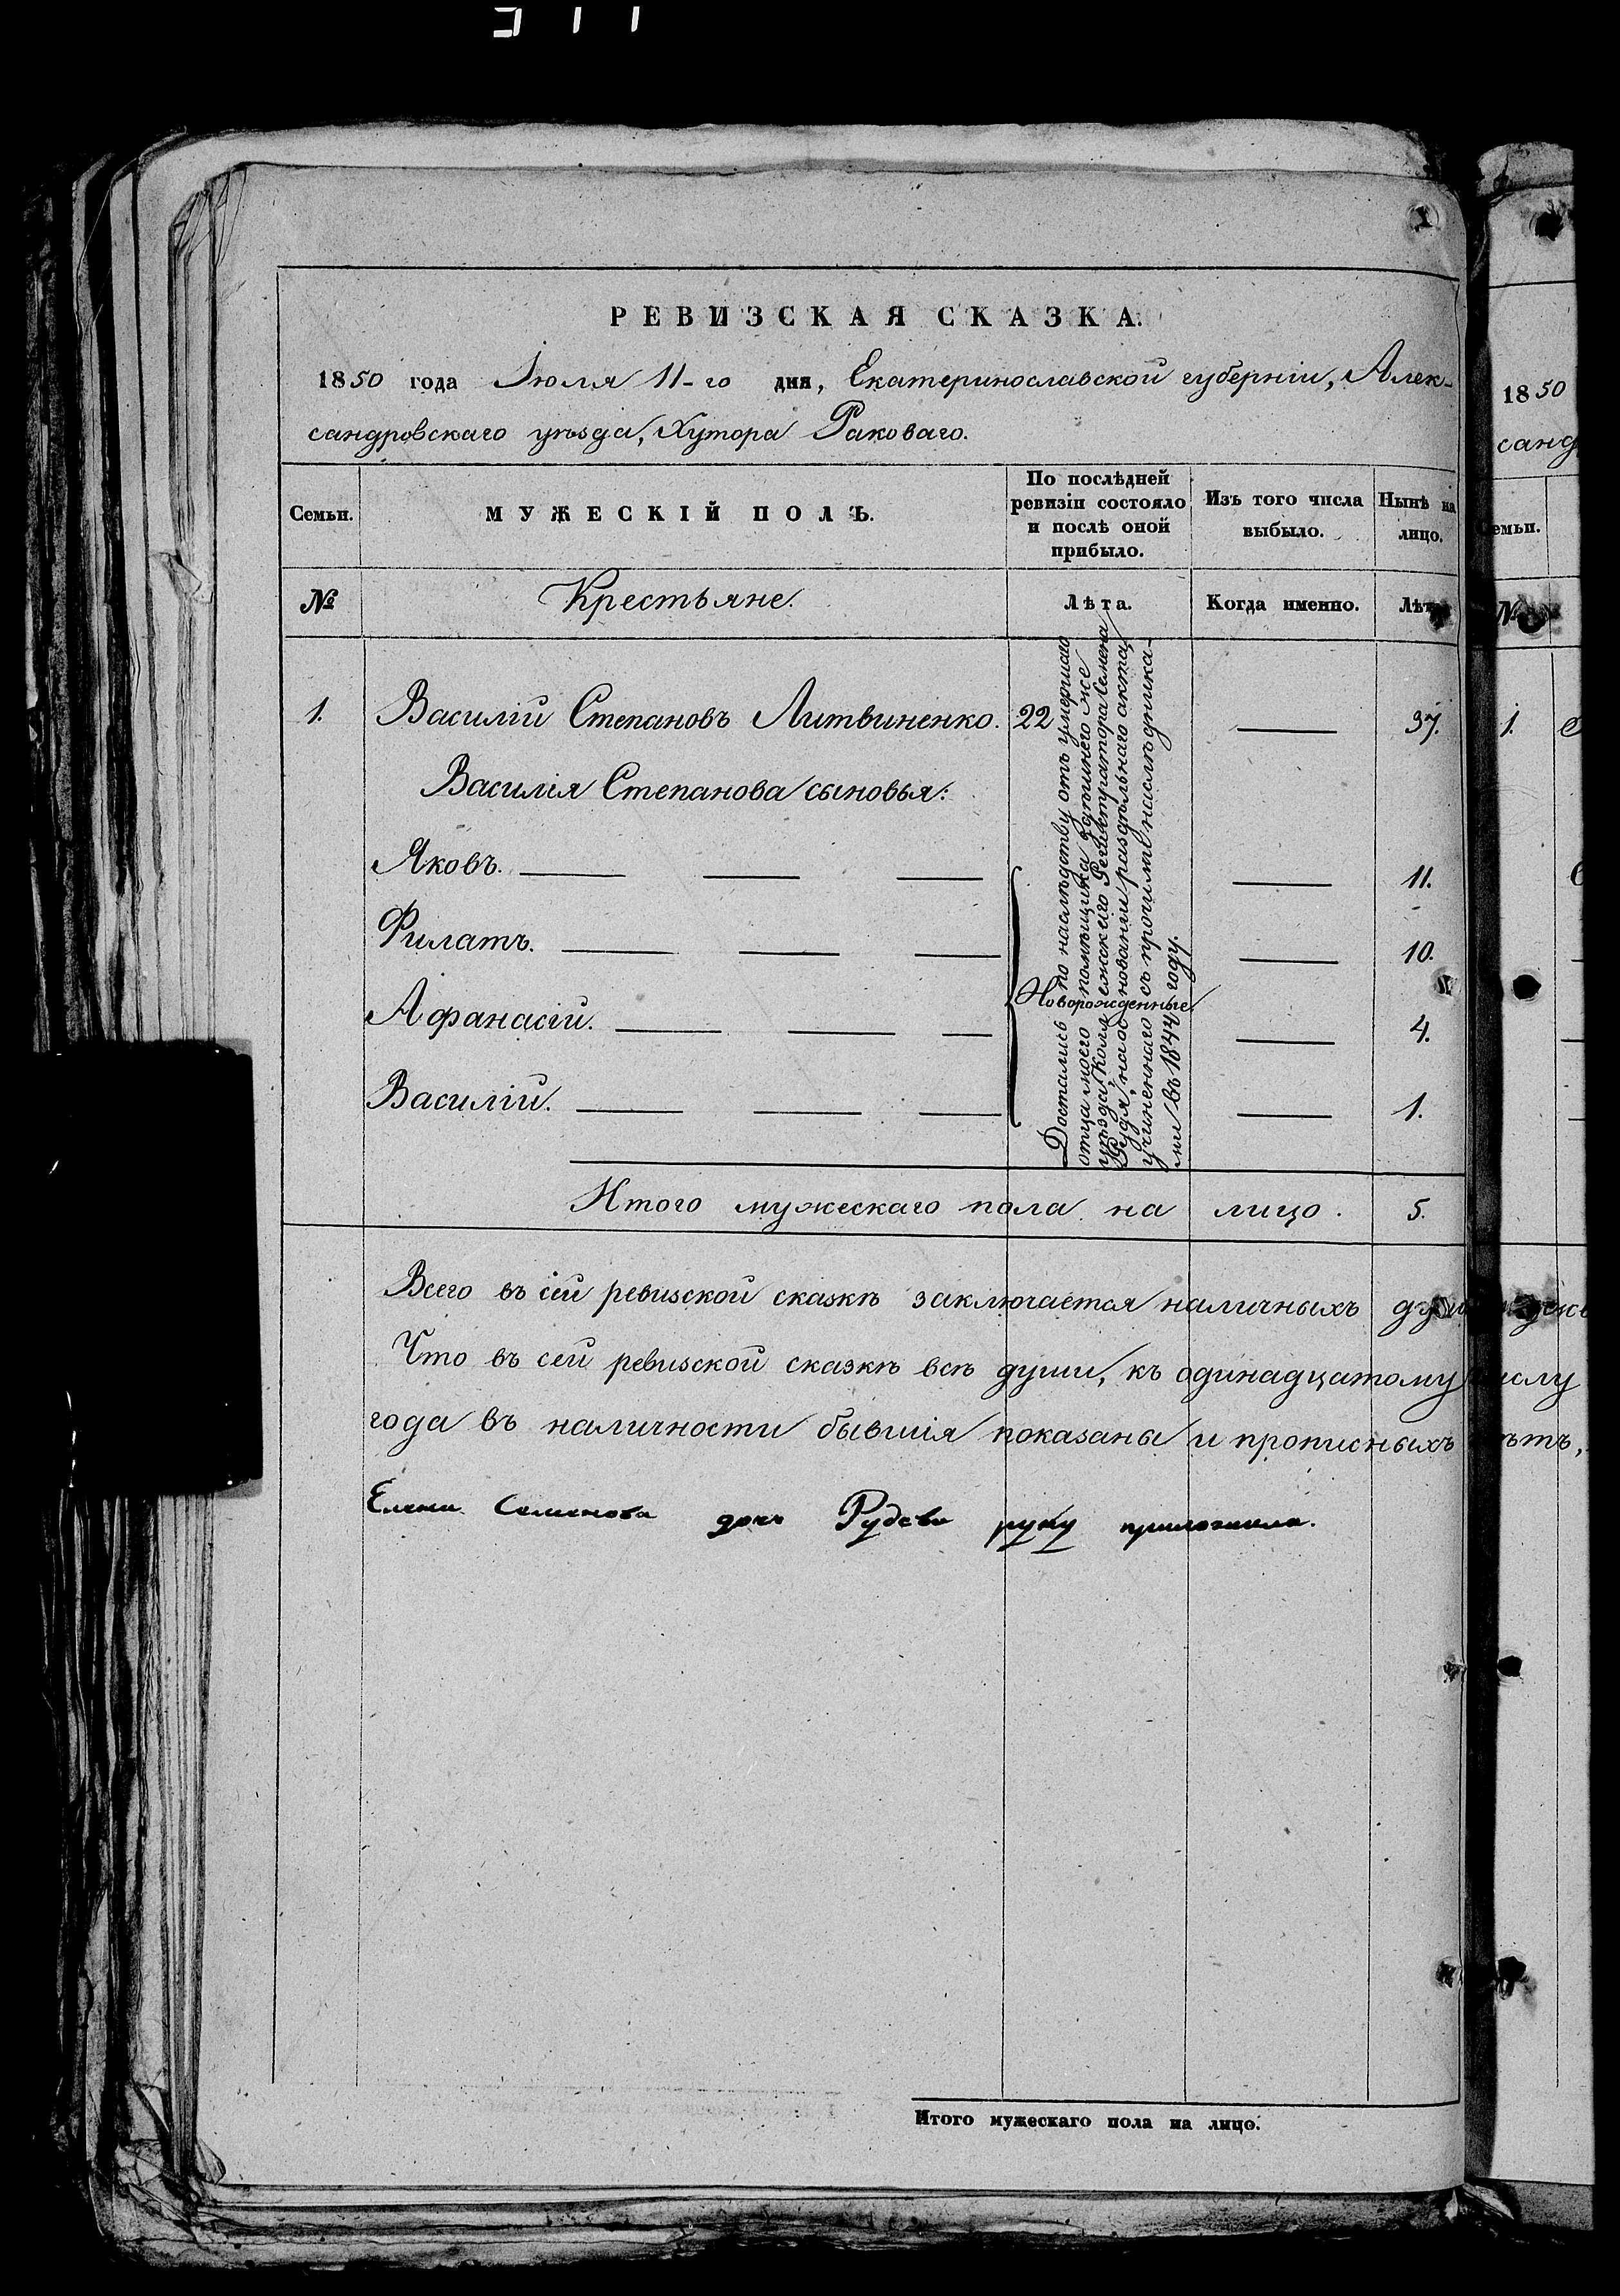 РЕВИЗСКАЯ СКАЗКА.
1850 года Іюля 11-го дня, Екатеринославской губерніи, Алек-
сандровскаго уѣзда, Хутора Раковаго.
Семьи.
МУЖЕСКІЙ ПОЛЪ.
По послѣдней
ревизіи состояло
и послѣ оной
прибыло.
Изъ того числа
выбыло.
Нынѣ на
лицо.
№
Крестьяне.
Лѣта.
Когда именно.
Лѣта
1. Василій Степановъ Литвиненко. 22 37.
Василія Степанова сыновья:
Яковъ. 11.
Филатъ. 10.
Афанасій. 4.
Василій. 1.
Новорожденные.
Достались по наслѣдству отъ умершаго
отца моего помѣщика здѣшнего же
уѣзда, Коллежского Регистратора Семена
Рудя, на основаніи раздѣльнаго акта,
учиненнаго съ прочими наслѣдника-
ми въ 1844 году.
Итого мужескаго пола на лицо. 5.
Всего въ сей ревизской сказкѣ заключается наличныхъ
Что въ сей ревизской сказкѣ всѣ души, къ одинадцатому числу
года въ наличности бывшія показаны и прописныхъ нѣтъ,
Елена Семенова дочь Рудева руку приложила.
Итого мужескаго пола на лицо.
1850
санд
Семьи.
№
1.